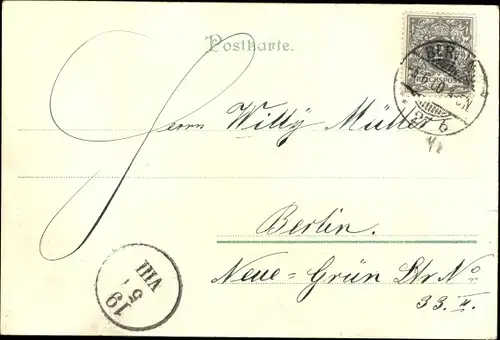 Postkarte.
BERLIN
27 b
Herrn Willy Müller
Berlin.
Neue=Grün Str No
33. II.
19
5
VIII